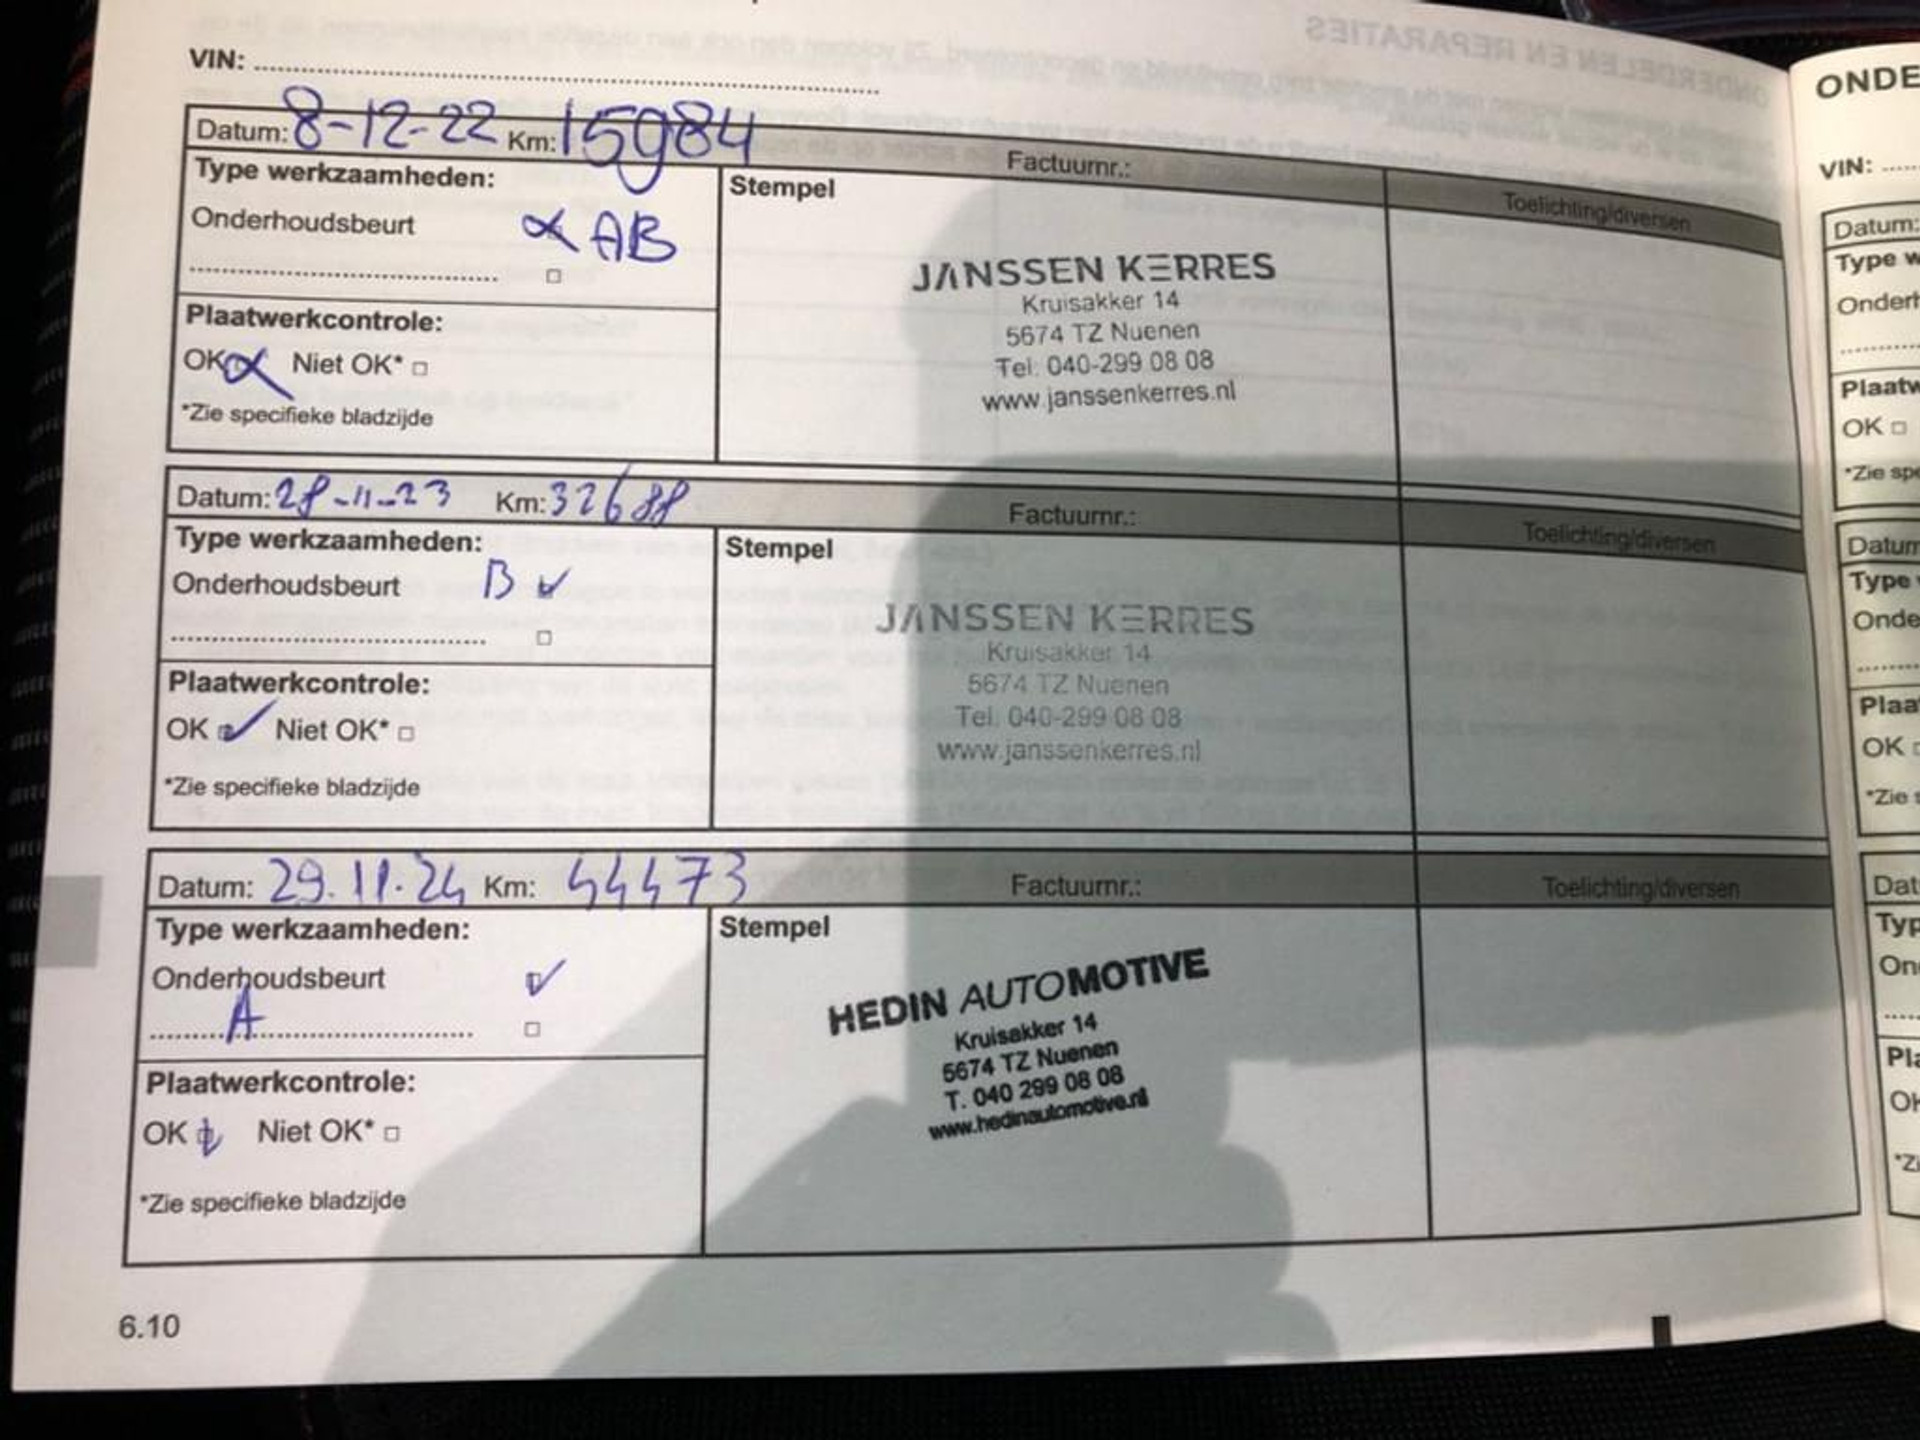 VIN: ........
Datum: 8-12-22 Km: 15984 Factuurnr.: Toelichting/diversen
Type werkzaamheden:
Onderhoudsbeurt AB
Plaatwerkcontrole:
OK Niet OK* □
*Zie specifieke bladzijde
Stempel
JANSSEN KERRES
Kruisakker 14
5674 TZ Nuenen
Tel: 040-299 08 08
www.janssenkerres.nl
Datum: 28-11-23 Km: 32688 Factuurnr.: Toelichting/diversen
Type werkzaamheden:
Onderhoudsbeurt B
Plaatwerkcontrole:
OK Niet OK* □
*Zie specifieke bladzijde
Stempel
JANSSEN KERRES
Kruisakker 14
5674 TZ Nuenen
Tel: 040-299 08 08
www.janssenkerres.nl
Datum: 29.11.24 Km: 44473 Factuurnr.: Toelichting/diversen
Type werkzaamheden:
Onderhoudsbeurt
A
Plaatwerkcontrole:
OK Niet OK* □
*Zie specifieke bladzijde
Stempel
HEDIN AUTOMOTIVE
Kruisakker 14
5674 TZ Nuenen
T. 040 299 08 08
www.hedinautomotive.nl
6.10
ONDE
VIN: ........
Datum:
Type w
Onderh
Plaatw
OK □
*Zie spe
Datum
Type
Onde
Plaa
OK
*Zie s
Dat
Typ
On
Pla
OK
*Zi
ONDERDELEN EN REPARATIES